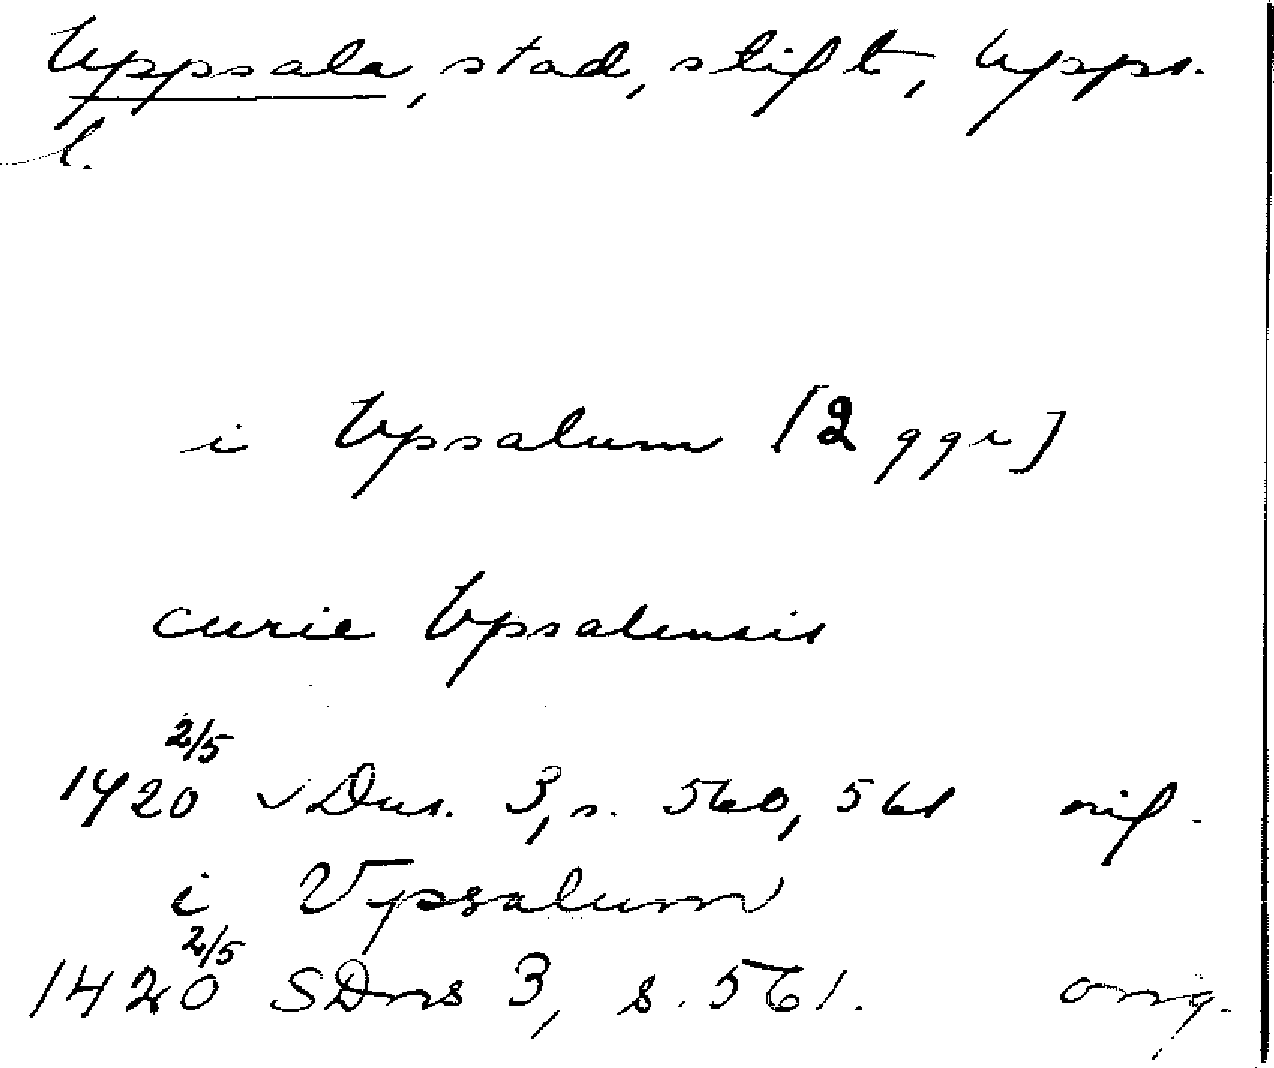 Uppsala, stad, stift, Upps.
l.
i Vpsalum [2 ggr]
curie Vpsalensis
1420 2/5 SDns. 3, s. 560, 561 orig.
i Vpsalum
1420 2/5 SDns 3, s. 561. orig.